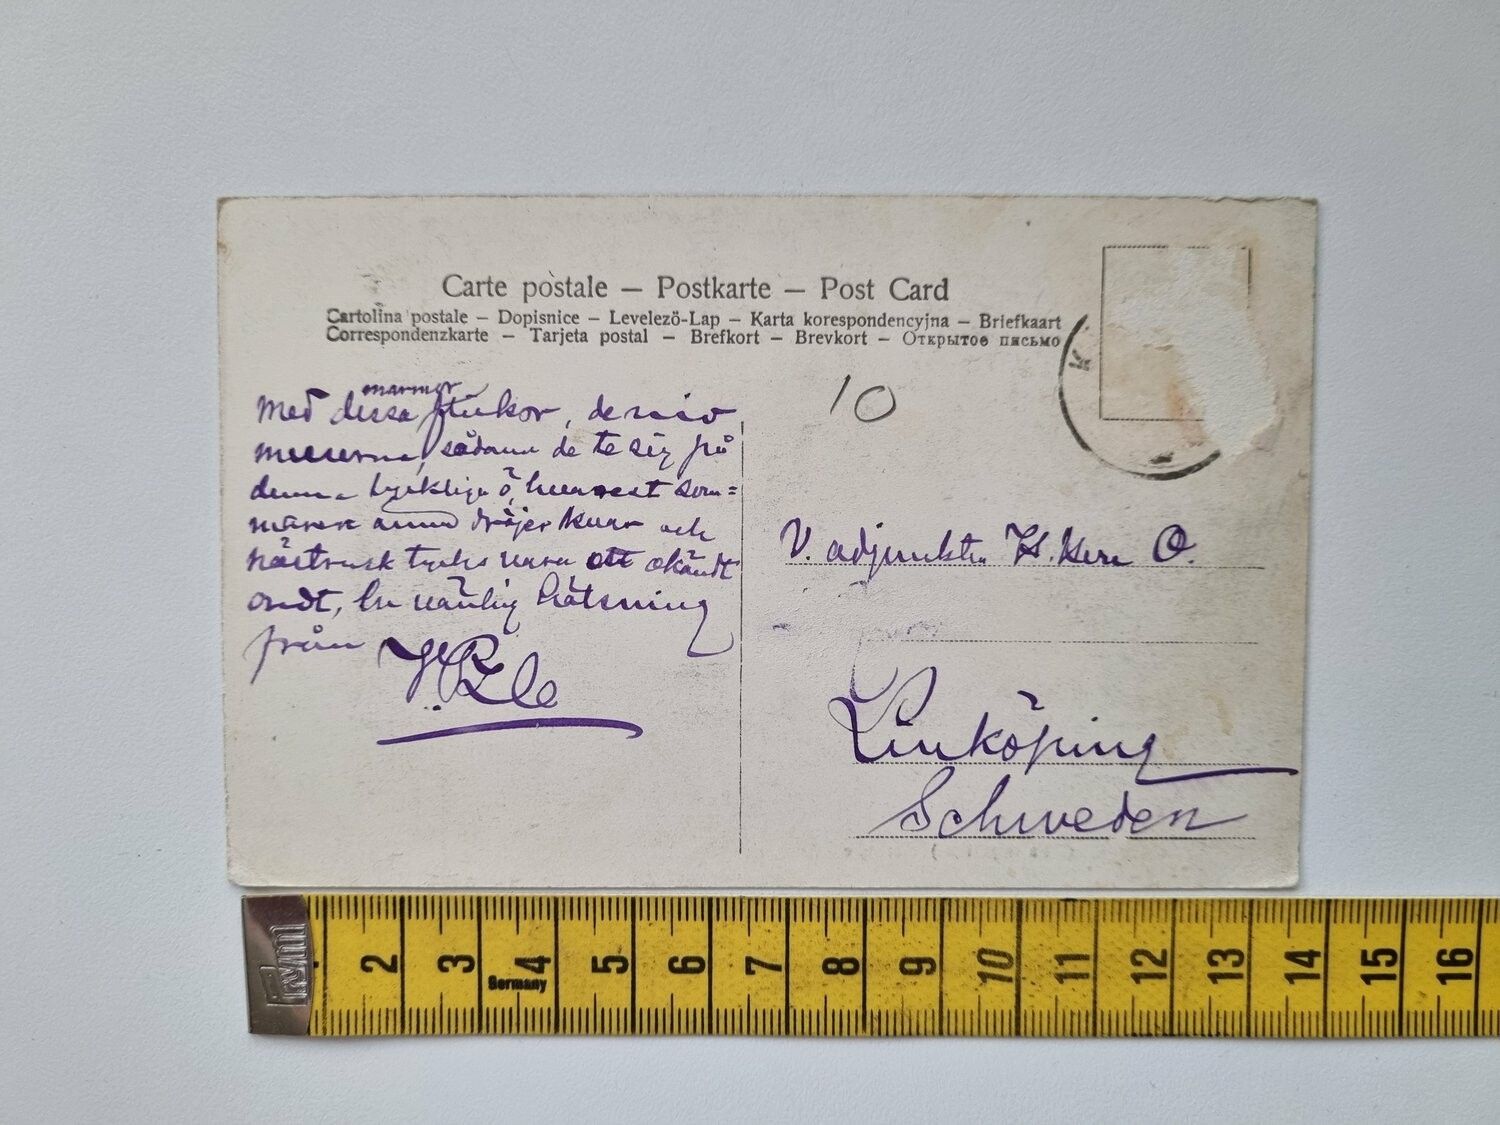 Carte postale – Postkarte – Post Card
Cartolina postale – Dopisnice – Levelező-Lap – Karta korespondencyjna – Briefkaart
Correspondenzkarte – Tarjeta postal – Brefkort – Brevkort – Открытое письмо
10
marmor
Med dessa flickor, de nio
muserna, sådana de te sig på
denna lyckliga ö, hvarest som=
maren ännu dröjer kvar och
höstrusk tycks vara ett okändt
ondt, en vänlig hälsning
från
V. adjunkten H. O.
Linköping
Schweden
prym
2 3 4 5 6 7 8 9 10 11 12 13 14 15 16
Germany